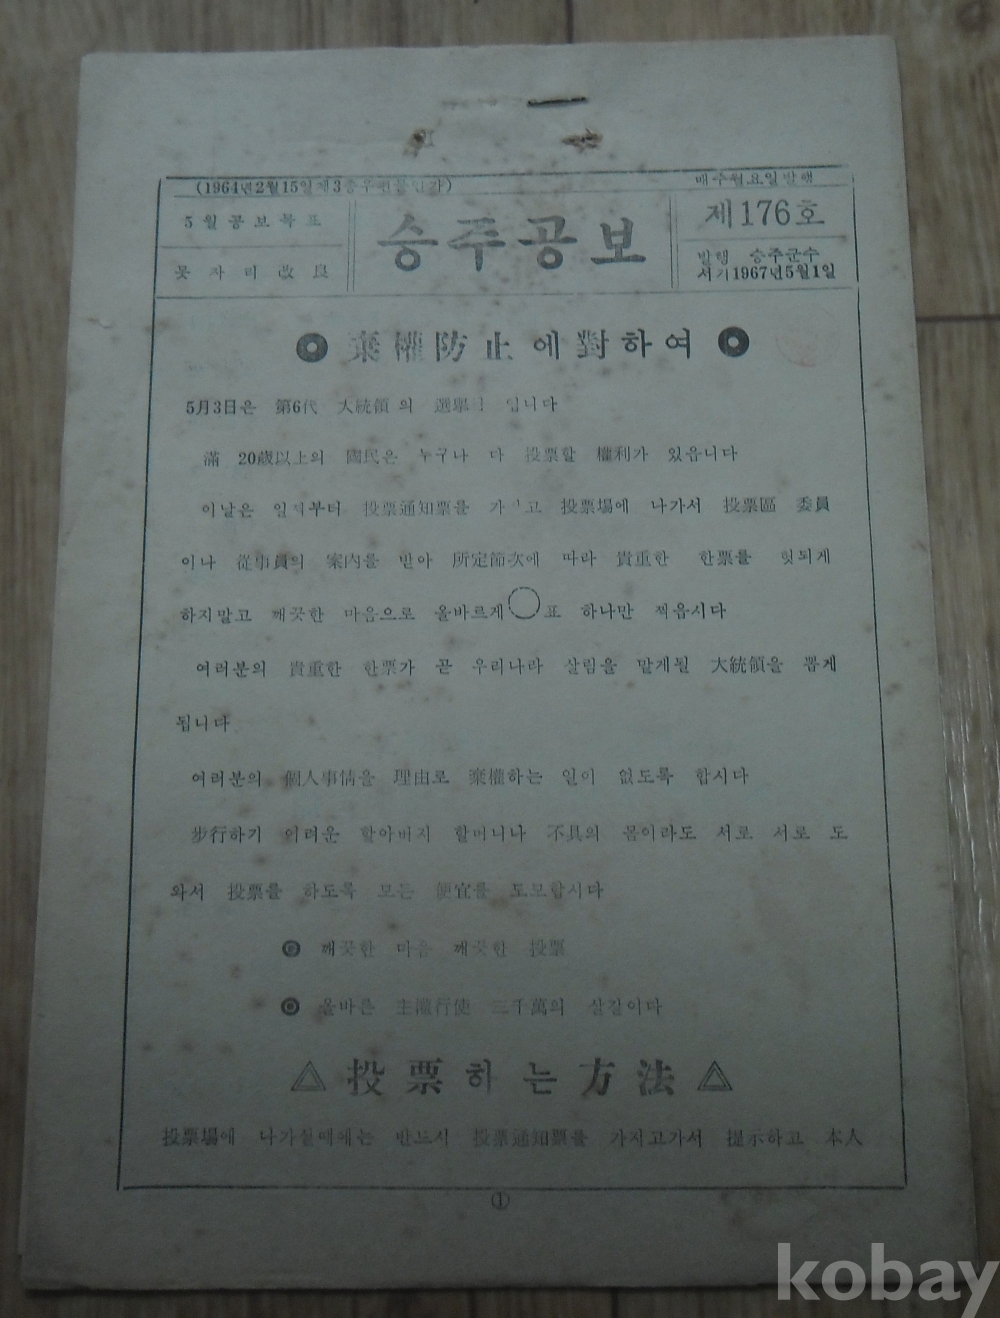 (1964년2월15일제3종우편물인가)
매주월요일발행
5월공보목표
못자리改良
승주공보
제176호
발행 승주군수
서기1967년5월1일
◎ 棄權防止에對하여 ◎
5月3日은 第6代 大統領의 選擧日 입니다
滿 20歲以上의 國民은 누구나 다 投票할 權利가 있읍니다
이날은 일찍부터 投票通知票를 가지고 投票場에 나가서 投票區 委員
이나 從事員의 案內를 받아 所定節次에 따라 貴重한 한票를 헛되게
하지말고 깨끗한 마음으로 올바르게 ○표 하나만 찍읍시다
여러분의 貴重한 한票가 곧 우리나라 살림을 맡게될 大統領을 뽑게
됩니다
여러분의 個人事情을 理由로 棄權하는 일이 없도록 합시다
步行하기 어려운 할아버지 할머니나 不具의 몸이라도 서로 서로 도
와서 投票를 하도록 모든 便宜를 도모합시다
◎ 깨끗한 마음 깨끗한 投票
◎ 올바른 主權行使 三千萬의 살길이다
△ 投票하는方法 △
投票場에 나가실때에는 반드시 投票通知票를 가지고가서 提示하고 本人
①
kobay